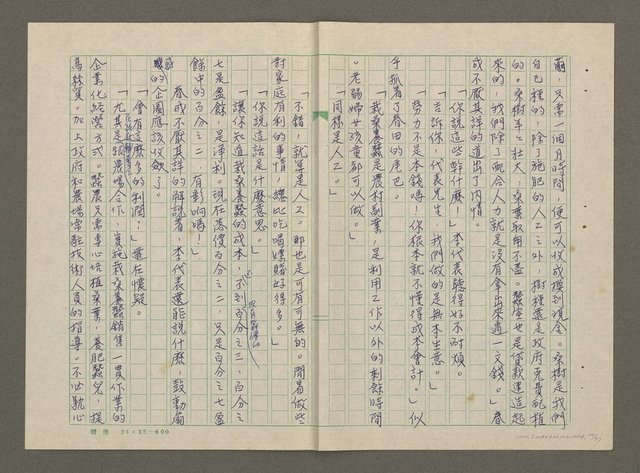 萌，只需一個月時間，便可以收成換到現金。桑樹是我們
自己種的，除了施肥的人工之外，樹種還是政府免費配植
的。桑樹年年壯大，桑葉取用不盡。蠶室也是貸款建造起
來的，我們除了配合人力就是沒有拿出來過一文錢。」春
成不厭其詳的道出了內情。
「你說這些幹什麼！」李代表聽得好不耐煩。
「告訴你，代表先生，我們做的是無本生意。」
「勞力不是本錢嗎！你根本就不懂得成本會計。」似
乎抓著了春田的尾巴。
「栽桑養蠶是農村副業，是利用工作以外的剩餘時間
。老弱婦女孩童都可以做。」
「同樣是人工。」
「不錯，就算是人工。那也是可有可無的。閒着做些
對家庭有利的事情，總比吃喝嫖賭好得多。」
「你說這話是什麼意思。」
「讓你知道栽桑養蠶的成本，不到百分之三，百分之
七是盈餘，是淨利。現在落價百分之二，只是百分之七盈
餘中的百分之二，有影响嗎！」
春成不厭其詳的解說着，李代表還能說什麼，鼓動
的企圖應該收歛了。
「會有這麼多的利潤？」還在懷疑。
「尤其是跟農場合作，實施栽桑養蠶銷售一貫作業的
企業化經營方式。蠶農只需專心培植桑葉，養肥蠶兒，提
高絲質。加上政府和農場常駐技術人員的指導。不必耽心
精煥 24×25=600